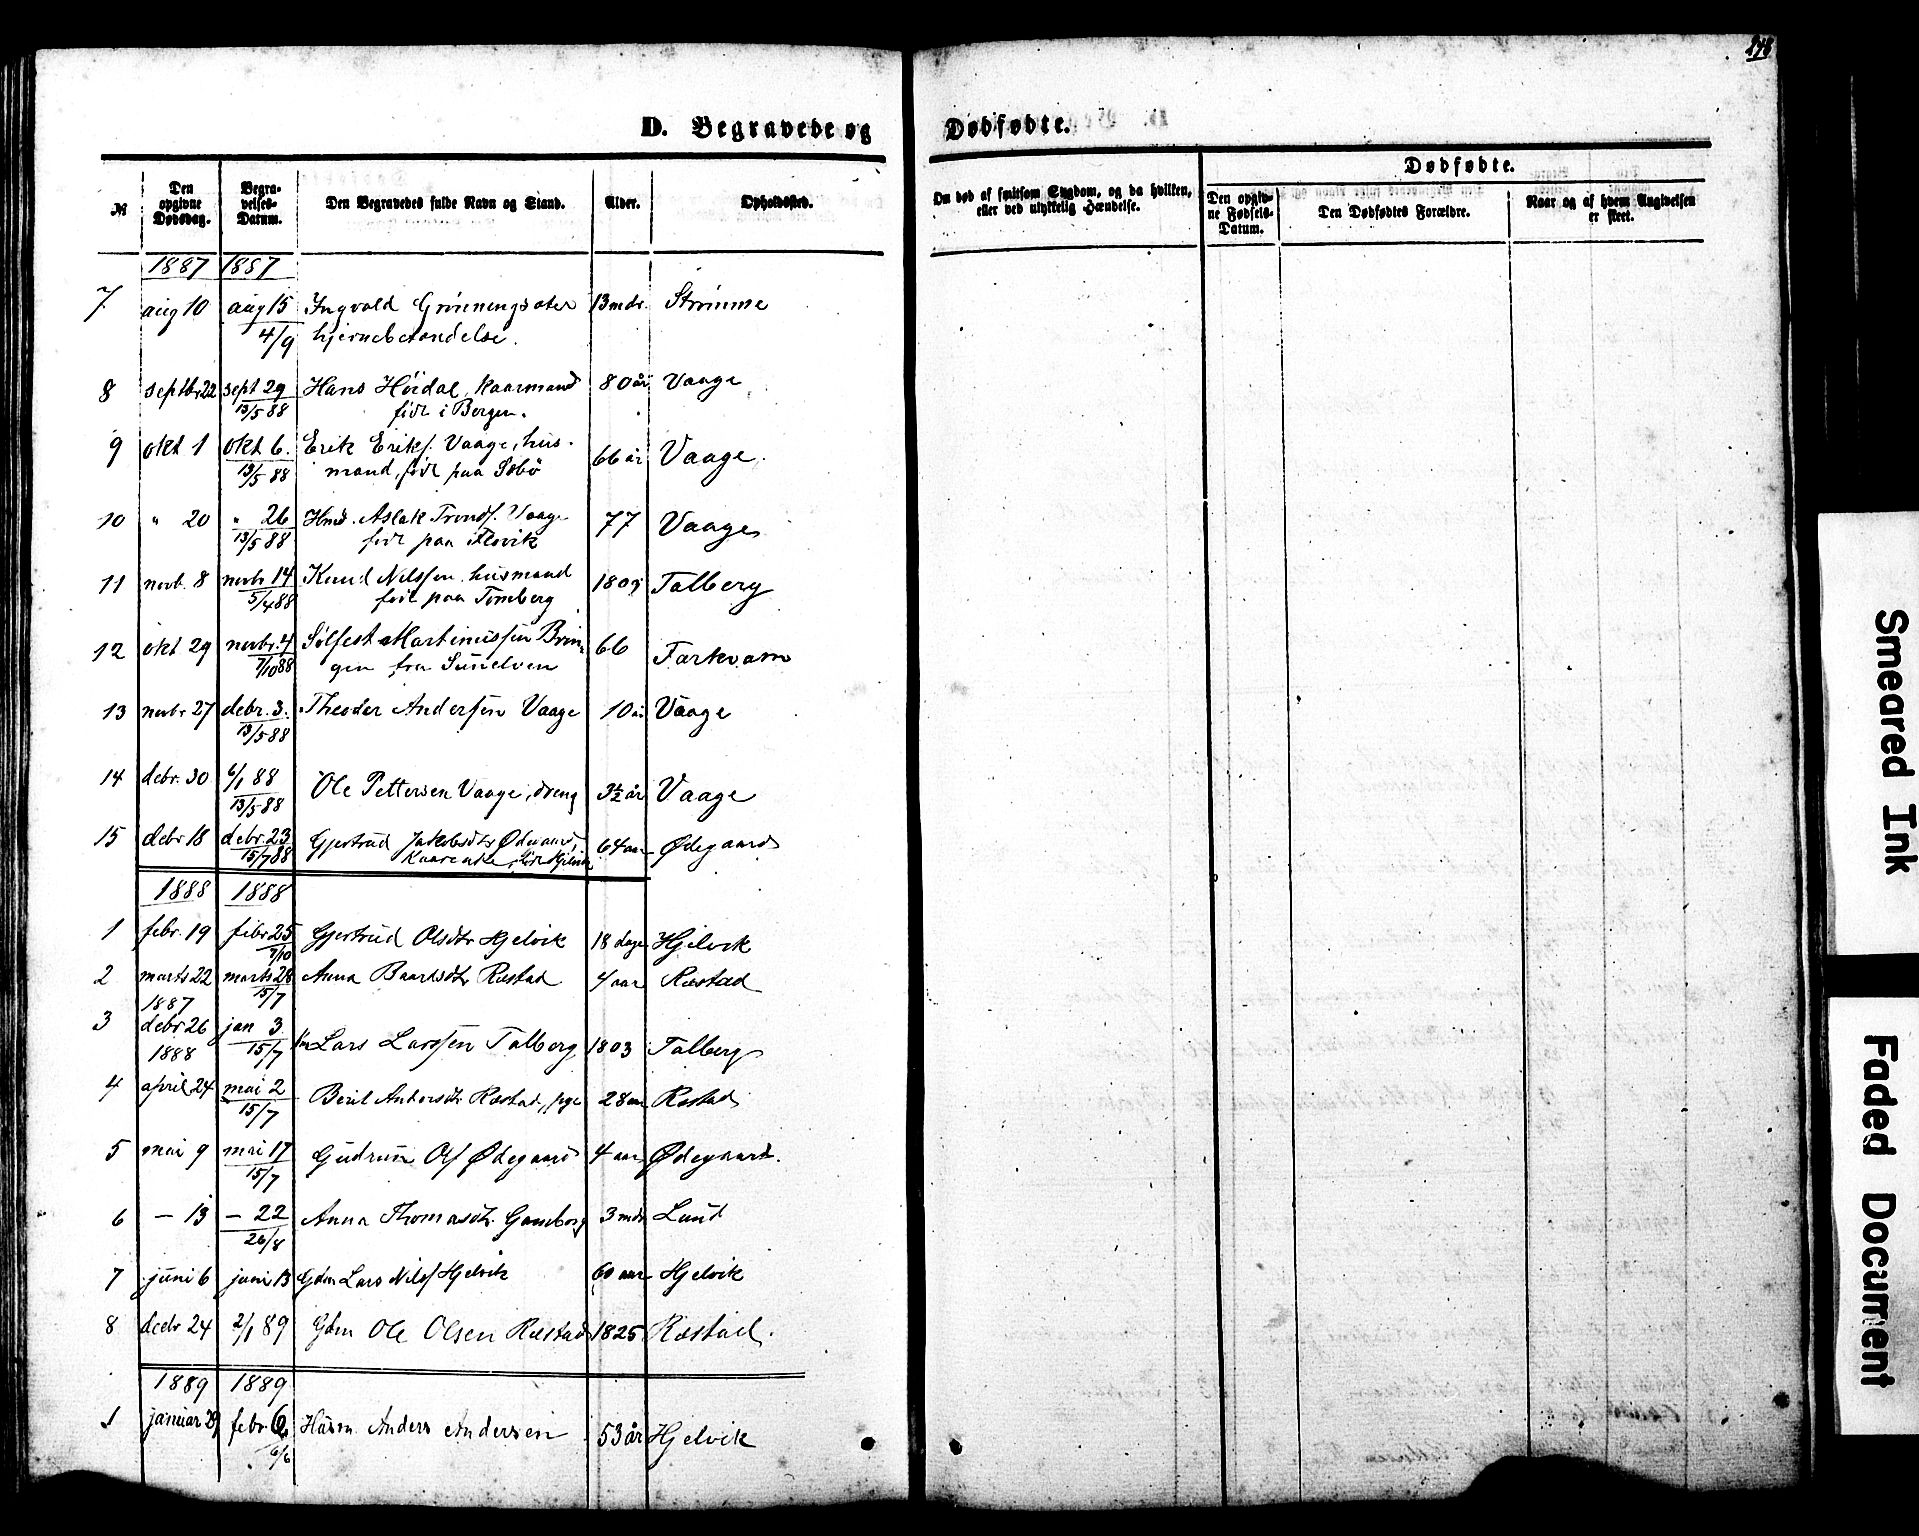 178
D. Begravede og Dødfødte.
№
Den opgivne Dødsdag.
Begravelses-Datum.
Den Begravedes fulde Navn og Stand.
Alder.
Opholdssted.
Om død af smitsom Sygdom, og da hvilken, eller ved ulykkelig Hændelse.
Dødfødte.
Den opgivne Fødsels-Datum.
Den Dødfødtes Forældre.
Naar og af hvem Angivelsen er skeet.
1887 1887
7 aug 10 aug 15 Ingvald Grönningsæter 13 mdr. Strømme
4/9 hjernebetændelse.
8 septbr 22 sept 29 Hans Höidal, kaarmand 80 år Vaage
13/5 88 født i Bergen.
9 okt 1 okt 6. Erik Eriks. Vaage, hus- 66 år Vaage
13/5 88 mand, født paa Sæbö
10 " 20 " 26 Hmd. Aslak Tronds. Vaage 77 Vaage
13/5 88 født paa Flovik
11 novb. 8 novbr 14 Knud Nilssen husmand Talberg
5/4 88 født paa Tomberg
12 okt 29 novbr. 4 Sølfest Martinussen Brin- 66 Farkvam
7/10 88 gen fra Sunelven
13 novbr 27 debr. 3. Theodor Anderssen Vaage 10 år Vaage
13/5 88
14 debr. 30 6/1 88 Ole Pettersen Vaage, dreng 3½ år Vaage
13/5 88
15 debr 18 debr. 23 Gjertrud Jakobsdtr Ødegaard, 64 aar Ødegaard
15/7 88 Kaarenke, født Hjelvik
1888 1888
1 febr. 19 febr 25 Gjertrud Olsdtr Hjelvik 18 dage Hjelvik
7/10
2 marts 22 marts 28 Anna Baardsdtr Ræstad 4 aar Ræstad
15/7
1887
3 debr 26 jan 3 Lars Larssen Talberg 1803 Talberg
1888 15/7
4 april 24 mai 2 Beril Andersdtr Ræstad, pge 28 aar Ræstad
15/7
5 mai 9 mai 17 Gudrun Ols Ødegaard 4 aar Ødegaard.
15/7
6 – 13 – 22 Anna Thomasdtr. Gamborg 3 mdr Lund
26/8
7 juni 6 juni 13 Gdm Lars Nilss Hjelvik 60 aar Hjelvik
8 decbr 24 2/1 89 Gdm Ole Olsen Ræstad 1825 Ræstad.
1889 1889
1 januar 29 febr. 6 Husm. Anders Andersen 53 år Hjelvik
6/6
Smeared Ink
Faded Document